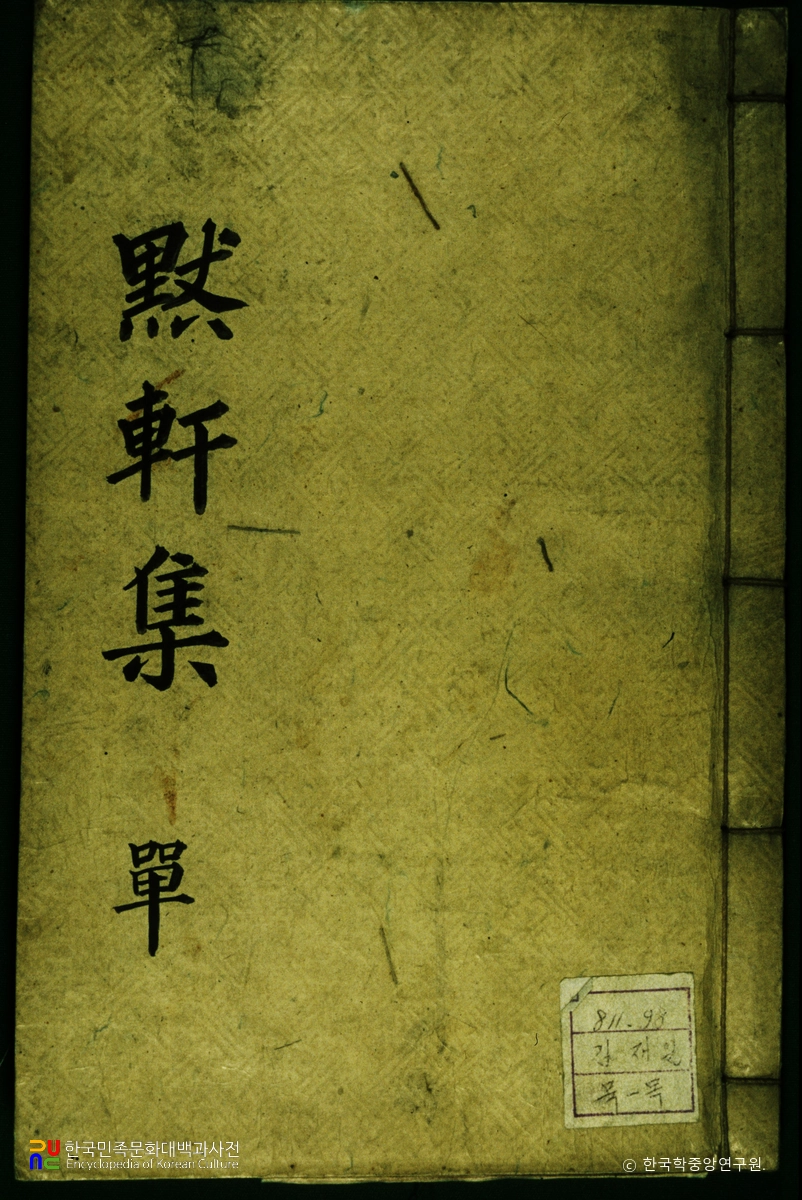 默軒集
單
811-98
김재일
묵-묵
한국민족문화대백과사전
Encyclopedia of Korean Culture
© 한국학중앙연구원.